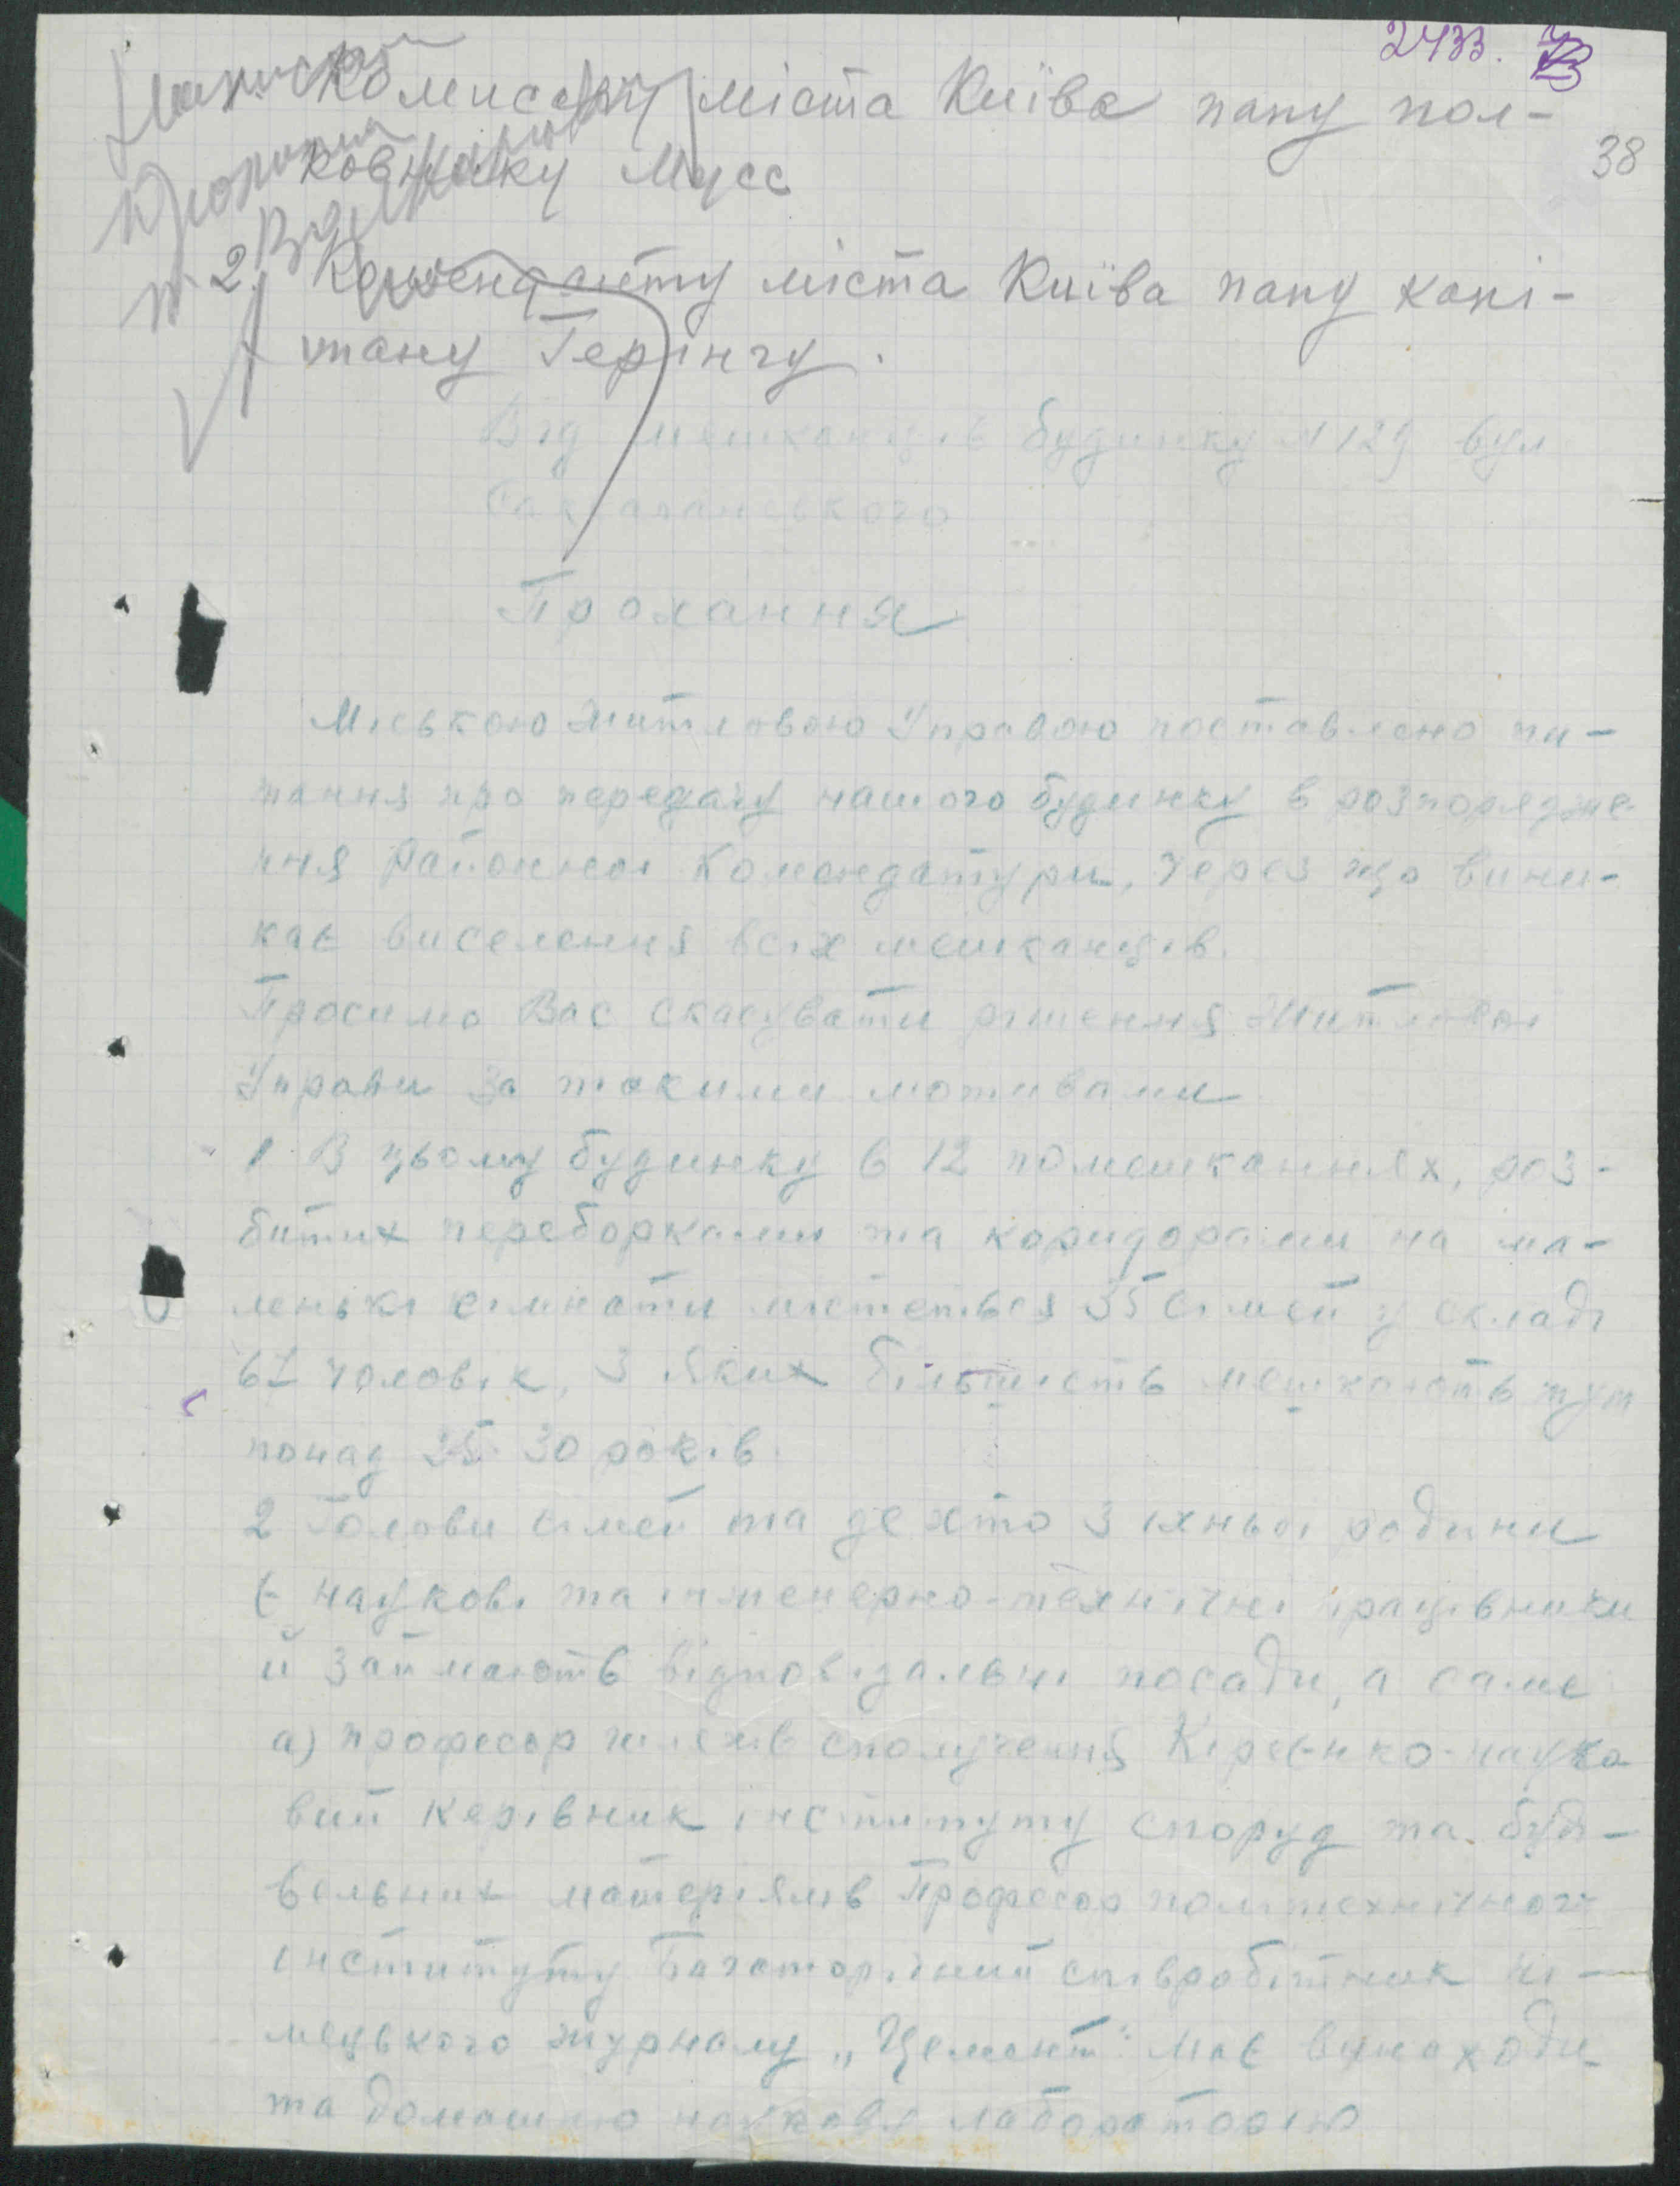 2433.
38
Комисару міста Київа пану пол-
ковнику Мусс
2. Коменданту міста Київа пану капі-
тану Герінгу.
Від мешканців будинку N 129 вул
Саксаганського
Прохання
Міською Житловою Управою поставлено пи-
тання про передачу нашого будинку в розпорядже-
ння Районної Комендатури, через що вини-
кає виселення всіх мешканців.
Просимо Вас скасувати рішення Житлової
Управи за такими мотивами
1 В цьому будинку в 12 помешканнях, роз-
битих переборками та коридорами на ма-
ленькі кімнати містеться 35 сімей у складі
67 чоловік, з яких більшість мешкають тут
понад 25-30 років.
2 Голови сімей та де хто з їхньої родини
є наукові та інженерно-технічні працівники
й займають відповідальні посади, а саме
а) професор шляхів сполучення Кірієнко-науко
вий керівник інституту споруд та буді-
вельних матеріялів Професор політехнічного
інституту Багаторічний співробітник ні-
мецького журналу „Цемент" Має винаходи
та домашню наукову лабораторію